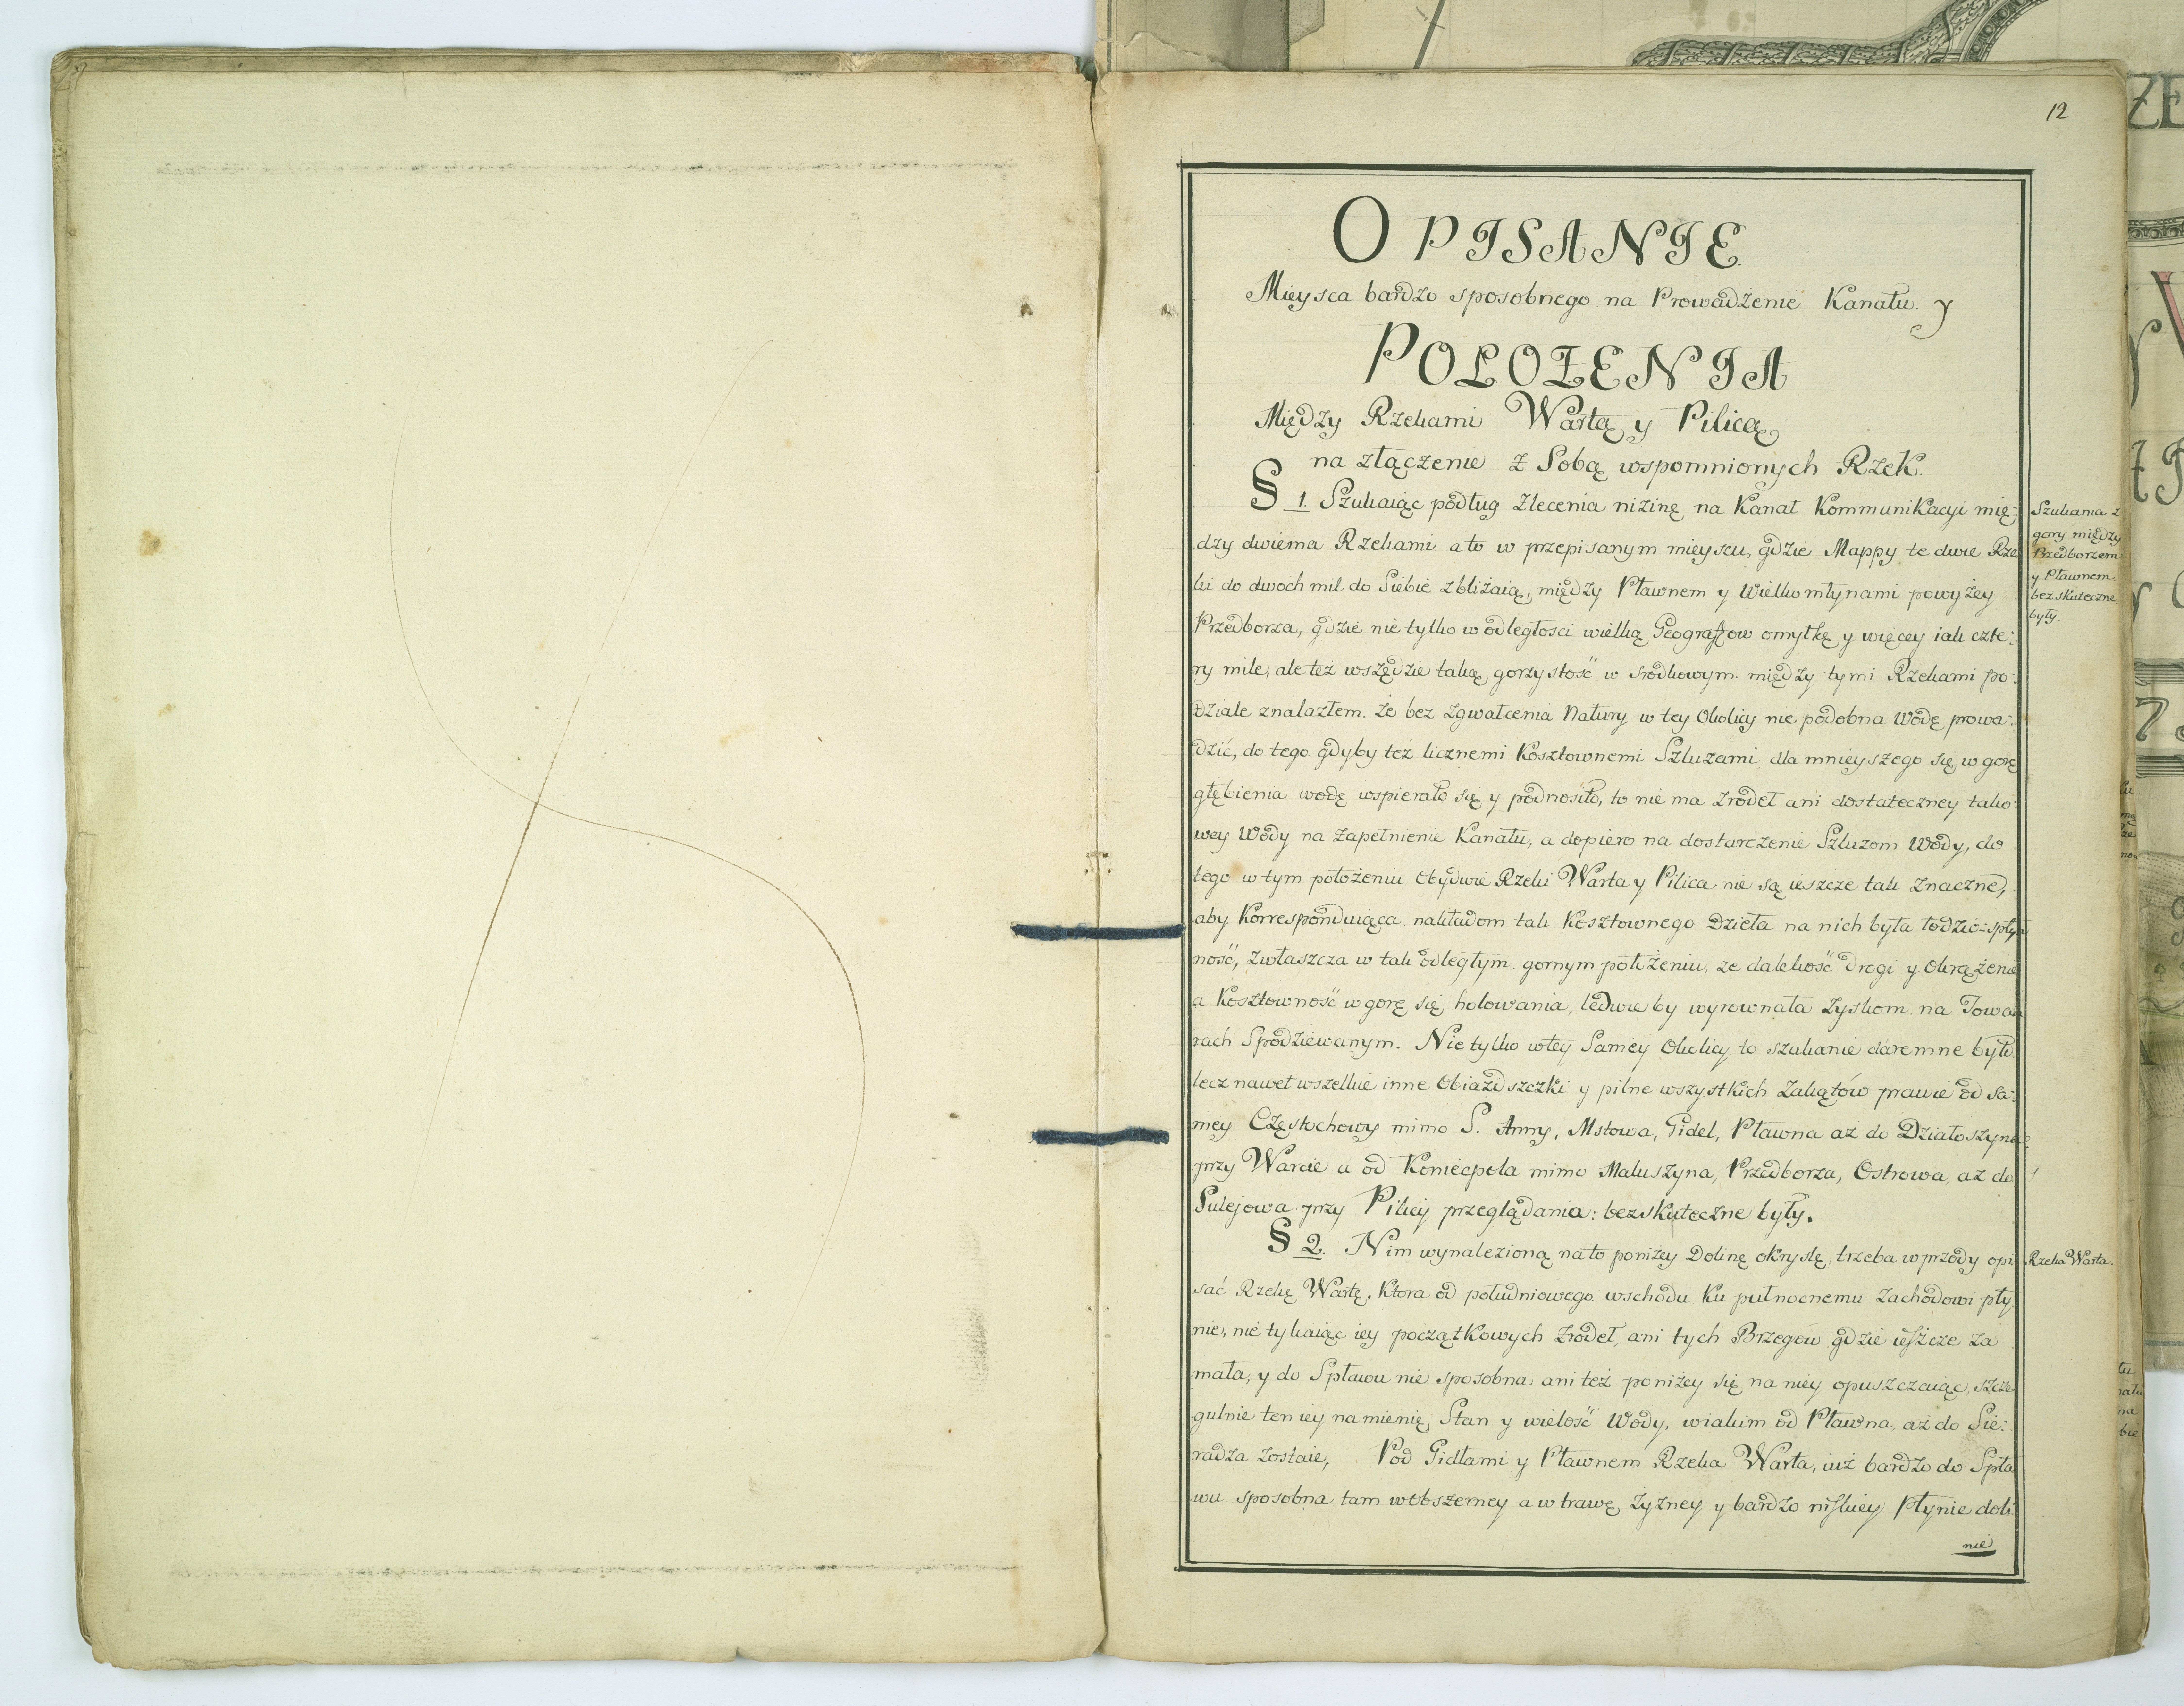 12
OPISANIE
Mieysca bardzo sposobnego na Prowadzenie Kanału y
POŁOŻENIA
Między Rzekami Wartą y Pilicą
na złączenie z Sobą wspomnionych Rzek.
§ 1. Szukaiąc podług zlecenia nizinę na Kanał Kommunikacyi mię:
dzy dwiema Rzekami a to w przepisanym mieyscu, gdzie Mappy te dwie Rze
ki do dwoch mil do Siebie zbliżaią, między Pławnem y Wielkomłynami powyżey
Przedborza, gdzie nie tylko w odległosci wielką Geografow omyłkę y więcey iak czte:
ry mile, ale też wszędzie taką gorzystość w srodkowym między tymi Rzekami po:
dziale znalazłem. że bez zgwałcenia Natury w tey Okolicy nie podobna Wodę prowa:
dzić, do tego gdyby też licznemi Kosztownemi Szluzami dla mnieyszego się w gorę
głębienia wodę wspierało się y podnosiło, to nie ma zrodeł ani dostateczney tako
wey Wody na zapełnienie Kanału, a dopiero na dostarczenie Szluzom Wody, do
tego w tym położeniu obydwie Rzeki Warta y Pilica nie są ieszcze tak znaczne,
aby Korresponduiąca nakładom tak Kosztownego Dzieła na nich była łodzio-spły
ność, zwłaszcza w tak odległym gornym położeniu, ze dalekość drogi y okrążenie
a Kosztowność w gorę się holowania, ledwie by wyrownała zyskom na Towa
rach Spodziewanym. Nie tylko w tey Samey Okolicy to szukanie daremne było
lecz nawet wszelkie inne Obiażdszczki y pilne wszystkich Zakątów prawie od sa:
mey Częstochowy mimo S. Anny, Mstowa, Gidel, Pławna aż do Działoszyna
przy Warcie a od Koniecpola mimo Maluszyna, Przedborza, Ostrowa, aż do
Sulejowa przy Pilicy przeglądania: bezskuteczne były.
§ 2. Nim wynalezioną na to poniżey Dolinę okryslę, trzeba w przody opi
sać Rzekę Wartę, Ktora od południowego wschodu Ku pułnocnemu Zachodowi pły
nie, nie tykaiąc iey początkowych zrodeł, ani tych Brzegow gdzie ieszcze za
mała, y do Spławu nie sposobna ani też poniżey się na niey opuszczaiąc, szcze
gulnie ten iey namienię Stan y wielość Wody, w iakim od Pławna, aż do Sie:
radza zostaie, Pod Gidlami y Pławnem Rzeka Warta, iuż bardzo do Spła
wu sposobna tam w obszerney a w trawę żyzney y bardzo niskiey Płynie doli
nie
Szukania z
gory między
Przedborzem
y Pławnem
bezskuteczne
były.
Rzeka Warta.